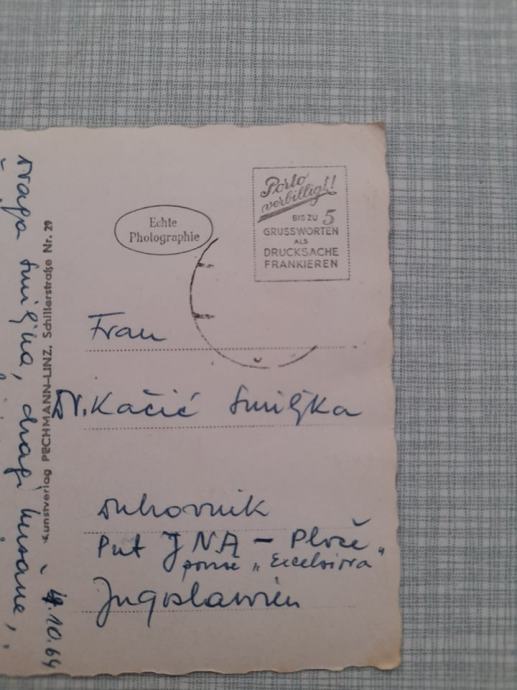 Porto
verbilligt!
BIS ZU 5
GRUSSWORTEN
ALS
DRUCKSACHE
FRANKIEREN
Echte
Photographie
Frau
Dr. Kačić Smiljka
Dubrovnik
Put JNA - Ploče
"Excelsiora"
Jugoslawien
Kunstverlag PECHMANN-LINZ, Schillerstraße Nr. 29
Draga Smiljka, dragi
10.64